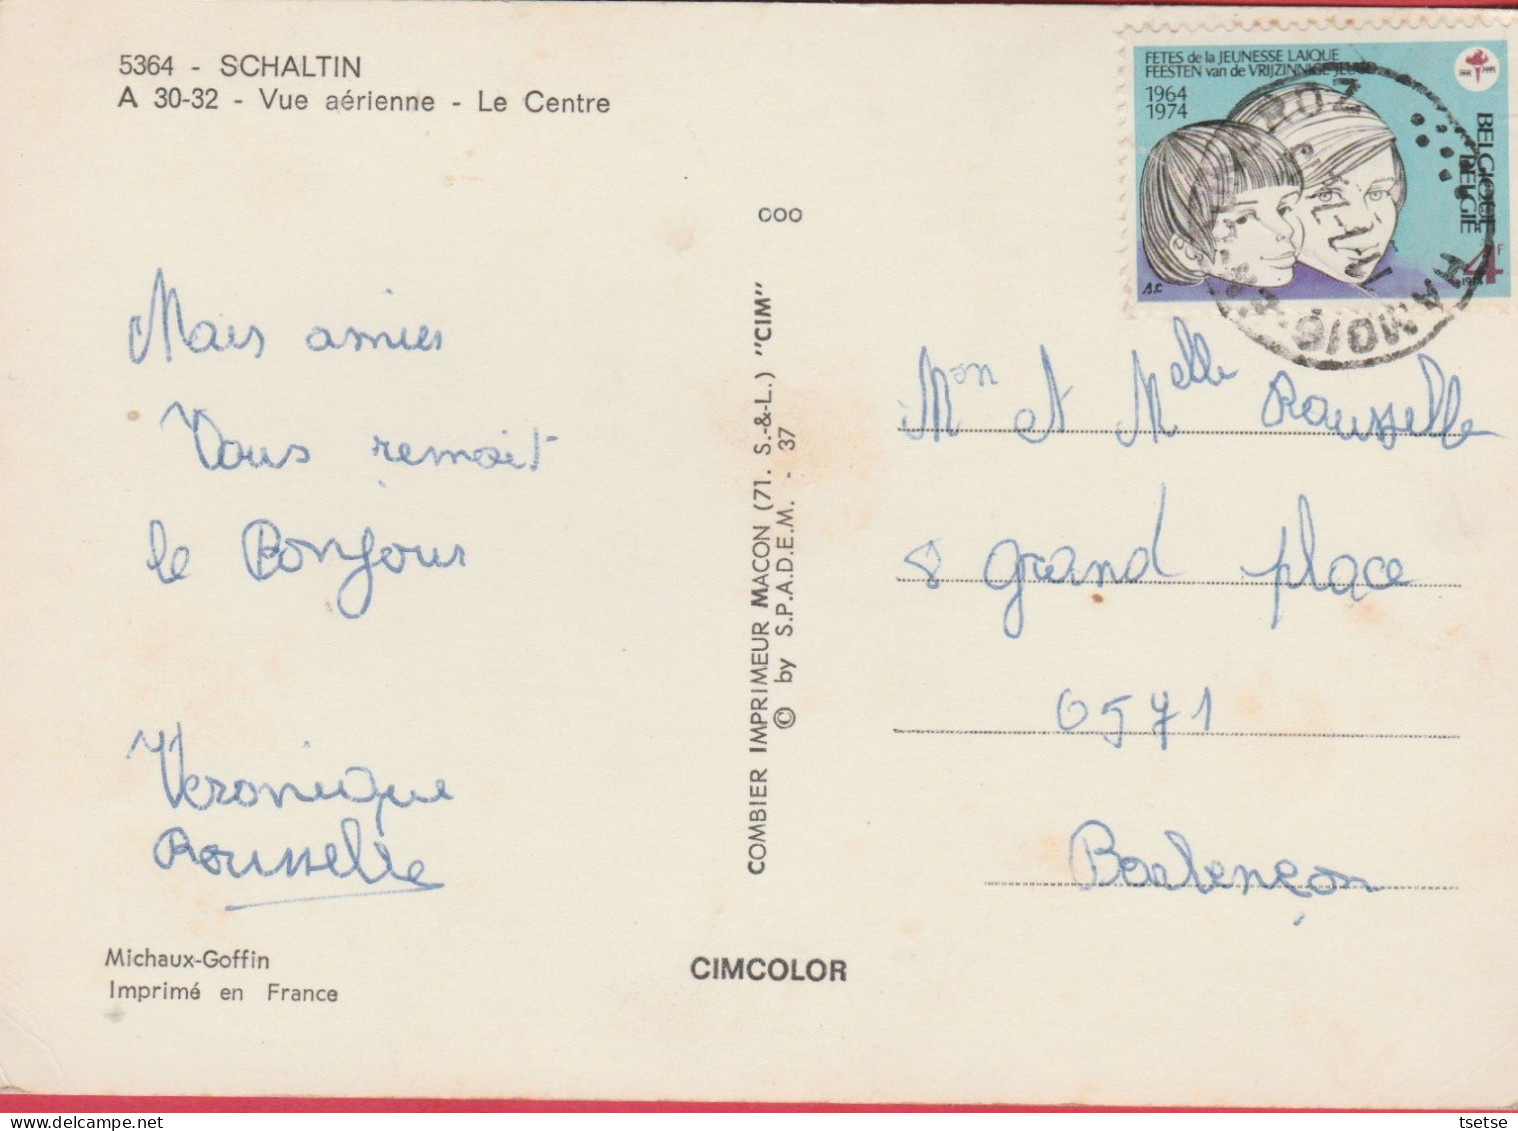 5364 - SCHALTIN
A 30-32 - Vue aérienne - Le Centre
FETES de la JEUNESSE LAIQUE
FEESTEN van de VRIJZINNIGE JEUGD
1964
1974
BELGIQUE
BELGIE
4F
1974
HAMOIS
COO
Mars amies
Vous remait
le Bonjour
Veronique
Rousselle
Mon et Melle Rousselle
8 grand place
6571
Barbençon
COMBIER IMPRIMEUR MACON (71. S.-&-L.) "CIM"
© by S.P.A.D.E.M. - 37
Michaux-Goffin
Imprimé en France
CIMCOLOR
tsetse